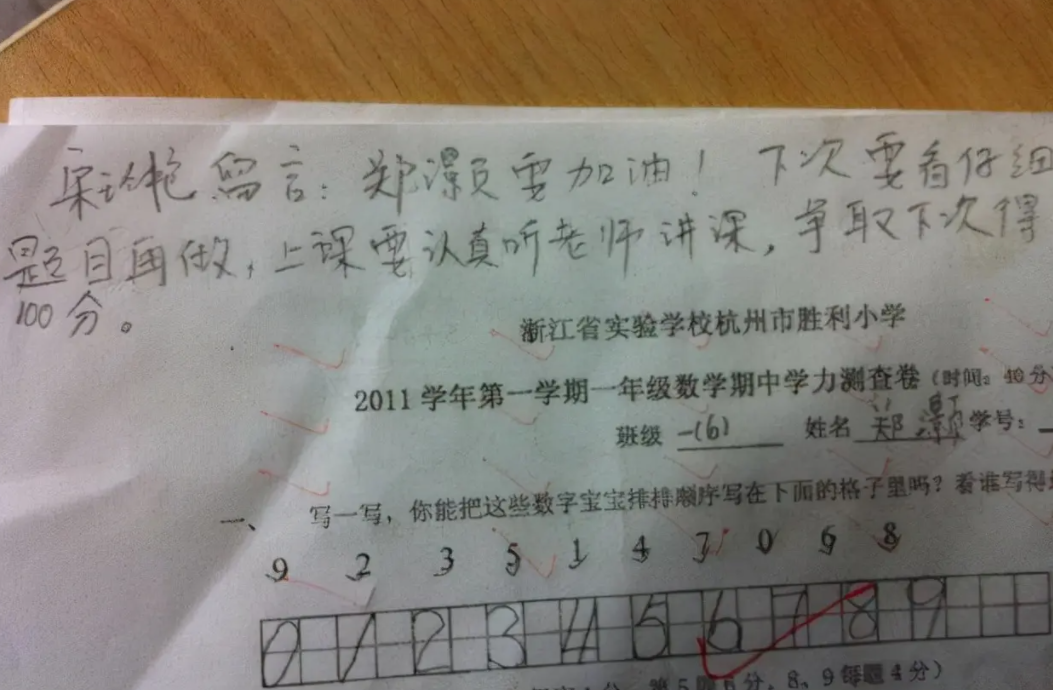 留言：郑灏要加油！ 下次要看仔细
题目再做，上课要认真听老师讲课，争取下次得
100分。
浙江省实验学校杭州市胜利小学
2011学年第一学期一年级数学期中学力测查卷（时间：40分
班级 一(6) 姓名 郑灏 学号：
一、 写一写，你能把这些数字宝宝排排顺序写在下面的格子里吗？看谁写得
9 2 3 5 1 4 7 0 6 8
0 1 2 3 4 5 6 7 8 9
分，8、9每题4分）